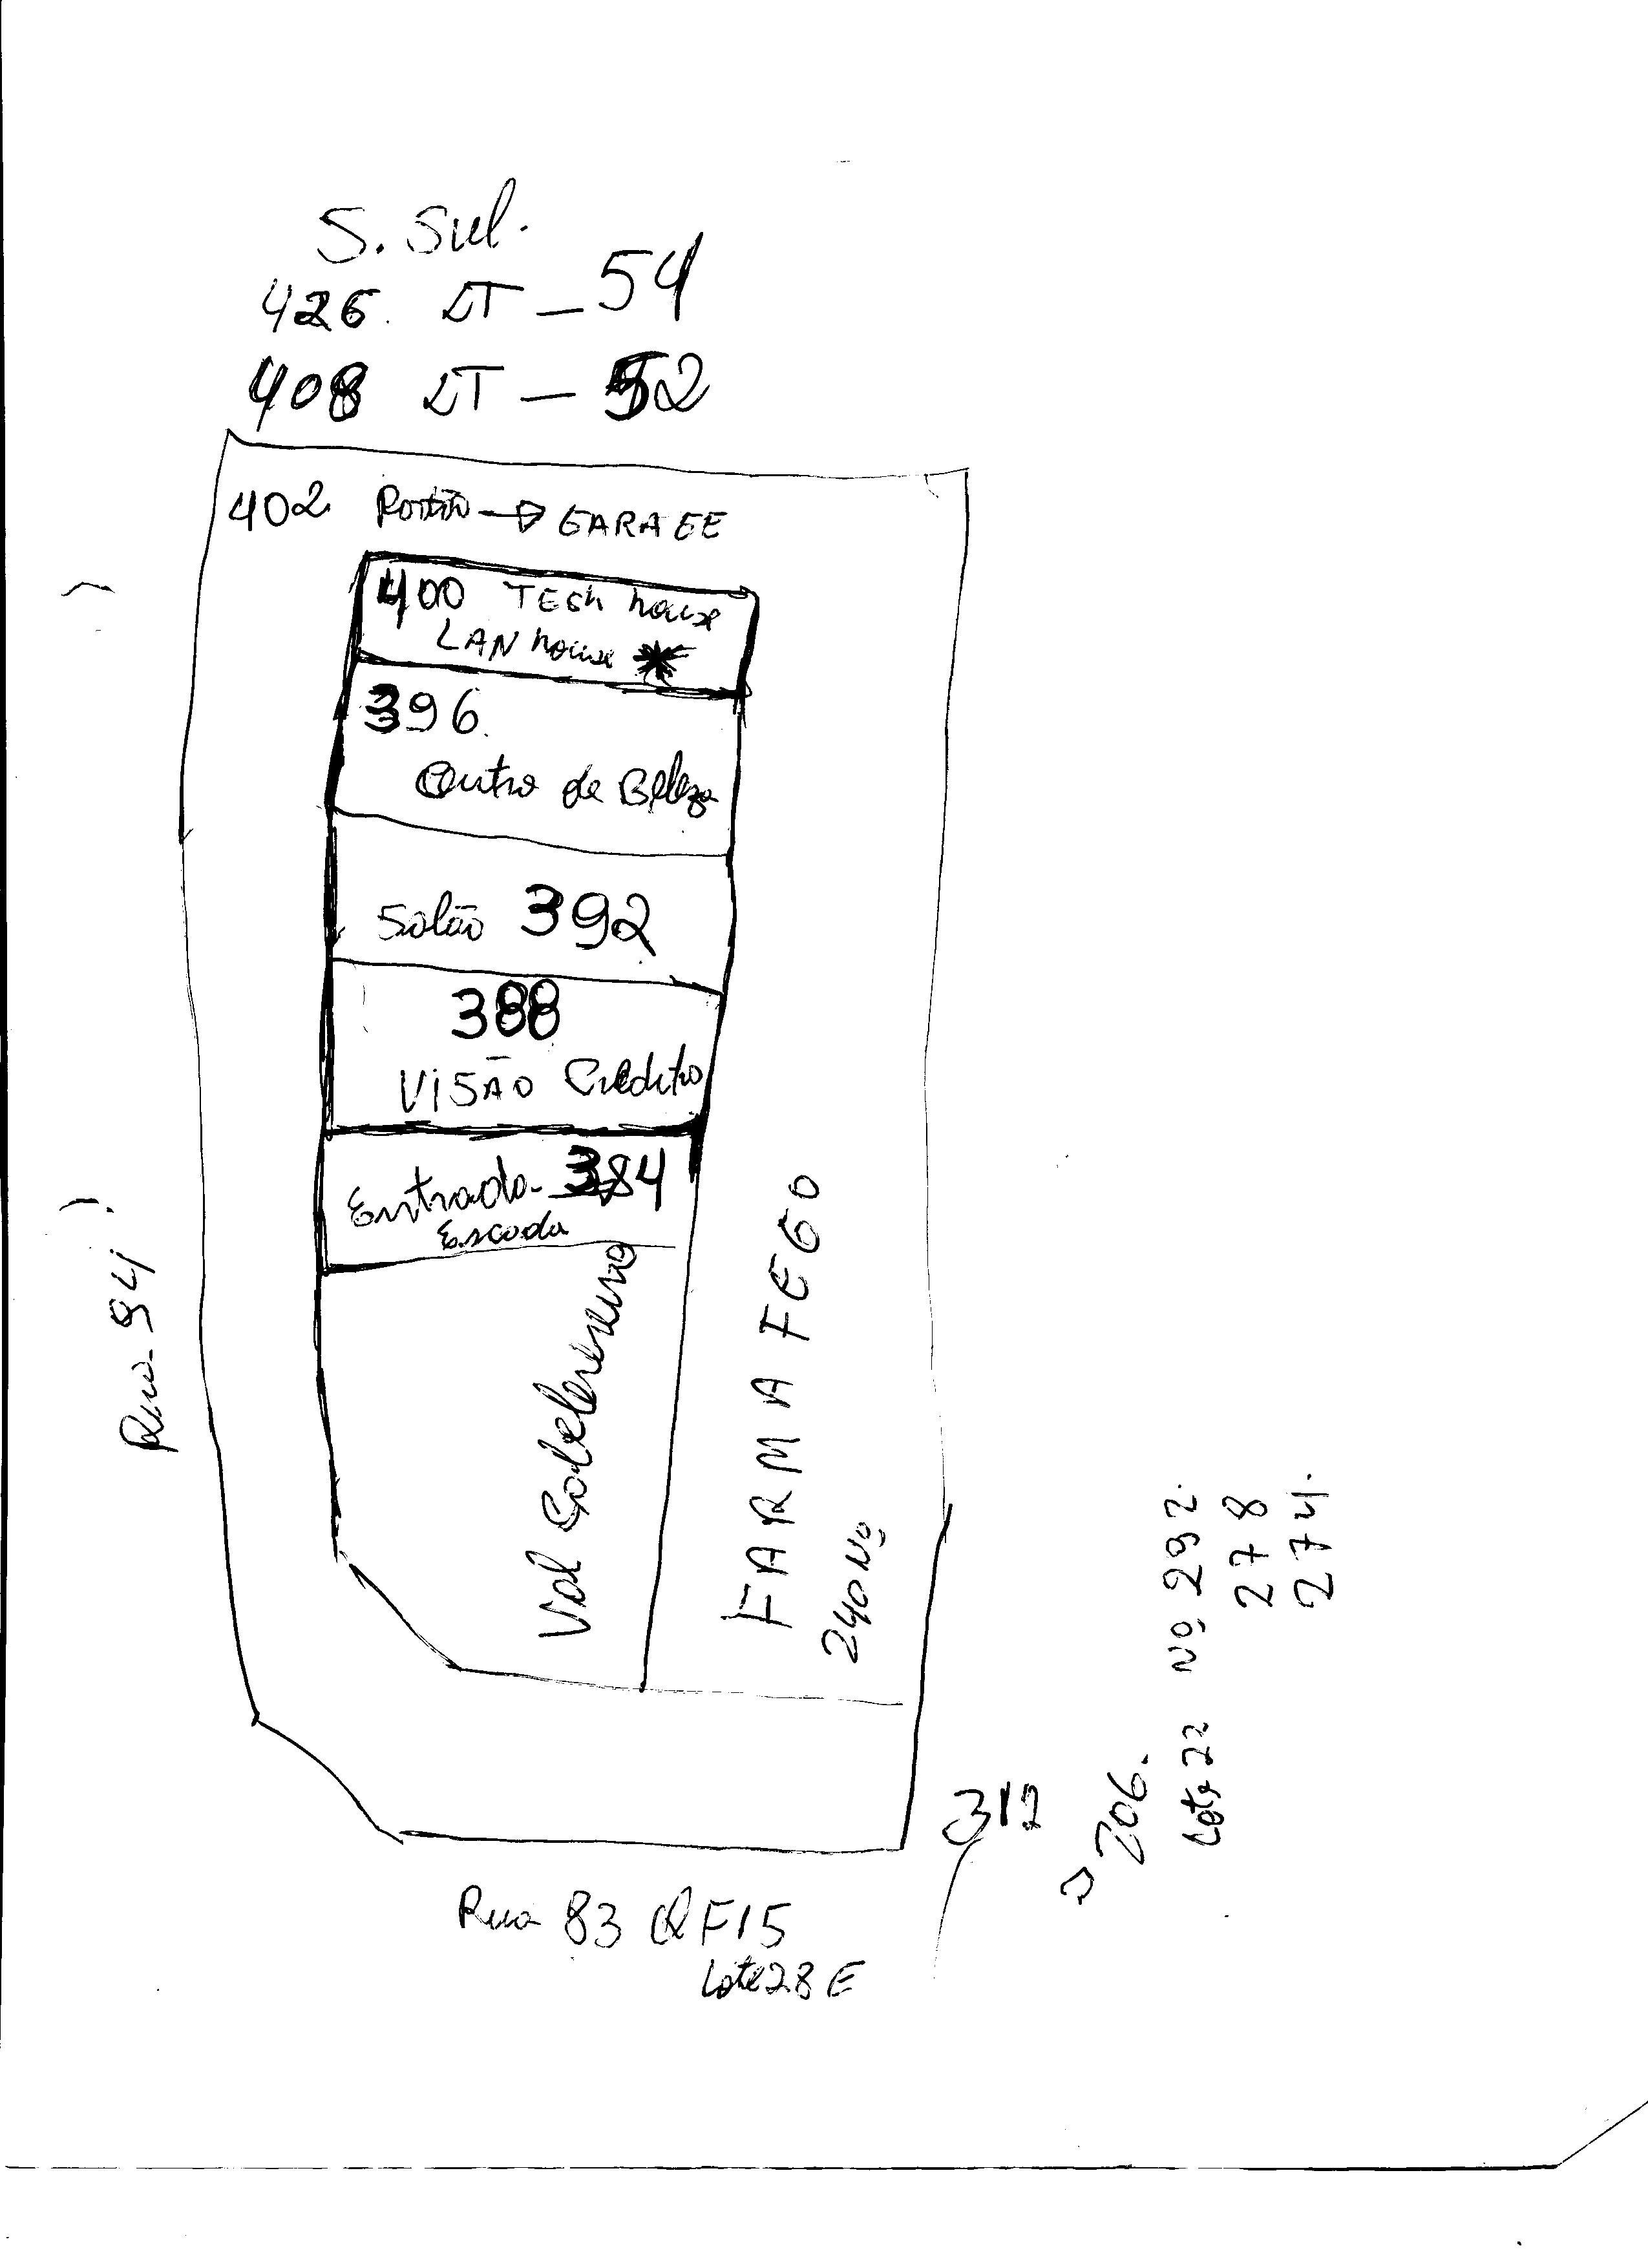 S. Sul.
426. LT - 54
408 LT - 52
402 Portão → GARAGE
400 TECH house
LAN house *
396.
Centro de Beleza
Salão 392
388
VISÃO Crédito
Entrada - 384
Escada
Val Cabelereiro
FARMAFEGO
240 Nº
Rua - 94
Rua 83 Q F15
Lote 28 E
312
→ 206.
Lote 22 Nº 292.
278
274.